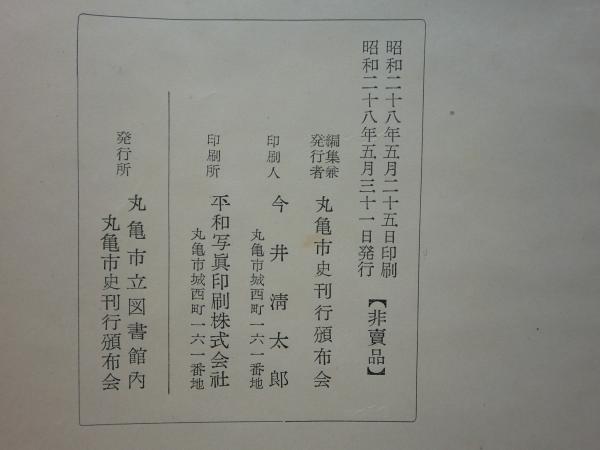 昭和二十八年五月二十五日印刷
昭和二十八年五月三十一日発行
【非賣品】
編集兼
発行者
丸亀市史刊行頒布会
印刷人
今井清太郎
丸亀市城西町一六一番地
印刷所
平和写眞印刷株式会社
丸亀市城西町一六一番地
発行所
丸亀市立図書館内
丸亀市史刊行頒布会